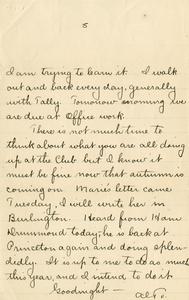 5
I am trying to learn it. I walk
out and back every day, generally
with Tally. Tomorrow morning we
are due at Office work.
There is not much time to
think about what you are all doing
up at the Club but I know it
must be fine now that autumn is
coming on. Marie's letter came
Tuesday, I will write her in
Burlington. Heard from Ham
Drummond today; he is back at
Princeton again and doing splen-
dedly. It is up to me to do as much
this year, and I intend to do it
Goodnight —